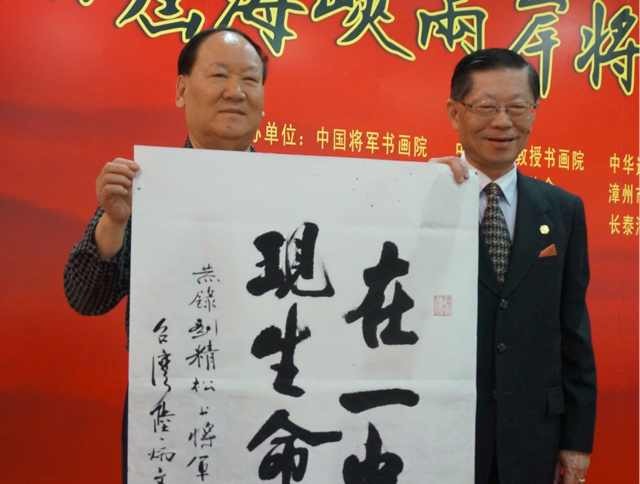 届海峡两岸将
办单位：中国将军书画院
教授书画院
中华
漳州市
长泰
在一
現生命
錄刘精松上將軍
台灣陸炳文